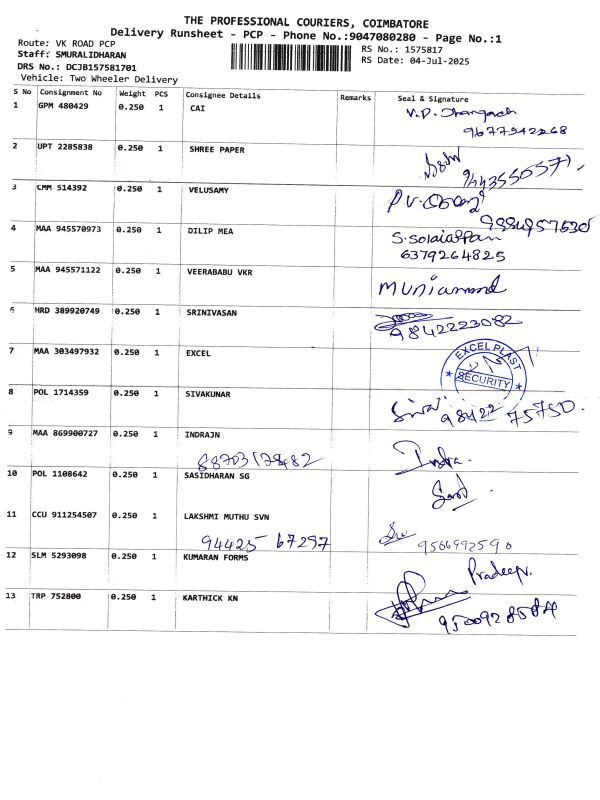 THE PROFESSIONAL COURIERS, COIMBATORE
Delivery Runsheet - PCP - Phone No.:9047080280 - Page No.:1
Route: VK ROAD PCP
RS No.: 1575817
Staff: SMURALIDHARAN
RS Date: 04-Jul-2025
DRS No.: DCJB157581701
Vehicle: Two Wheeler Delivery
S No Consignment No Weight PCS Consignee Details Remarks Seal & Signature
1 GPM 480429 0.250 1 CAI
9677942268
2 UPT 2285838 0.250 1 SHREE PAPER
3 CMM 514392 0.250 1 VELUSAMY
4 MAA 945570973 0.250 1 DILIP MEA
S.Solaiappan
6379264825
5 MAA 945571122 0.250 1 VEERABABU VKR
6 HRD 389920749 0.250 1 SRINIVASAN
9842223082
7 MAA 303497932 0.250 1 EXCEL
EXCEL PLAST
SECURITY
8 POL 1714359 0.250 1 SIVAKUNAR
98422 75750.
9 MAA 869900727 0.250 1 INDRAJN
Indra.
10 POL 1108642 0.250 1 SASIDHARAN SG
11 CCU 911254507 0.250 1 LAKSHMI MUTHU SVN
94425 67297
9566992590
12 SLM 5293098 0.250 1 KUMARAN FORMS
Pradeep.
13 TRP 752800 0.250 1 KARTHICK KN